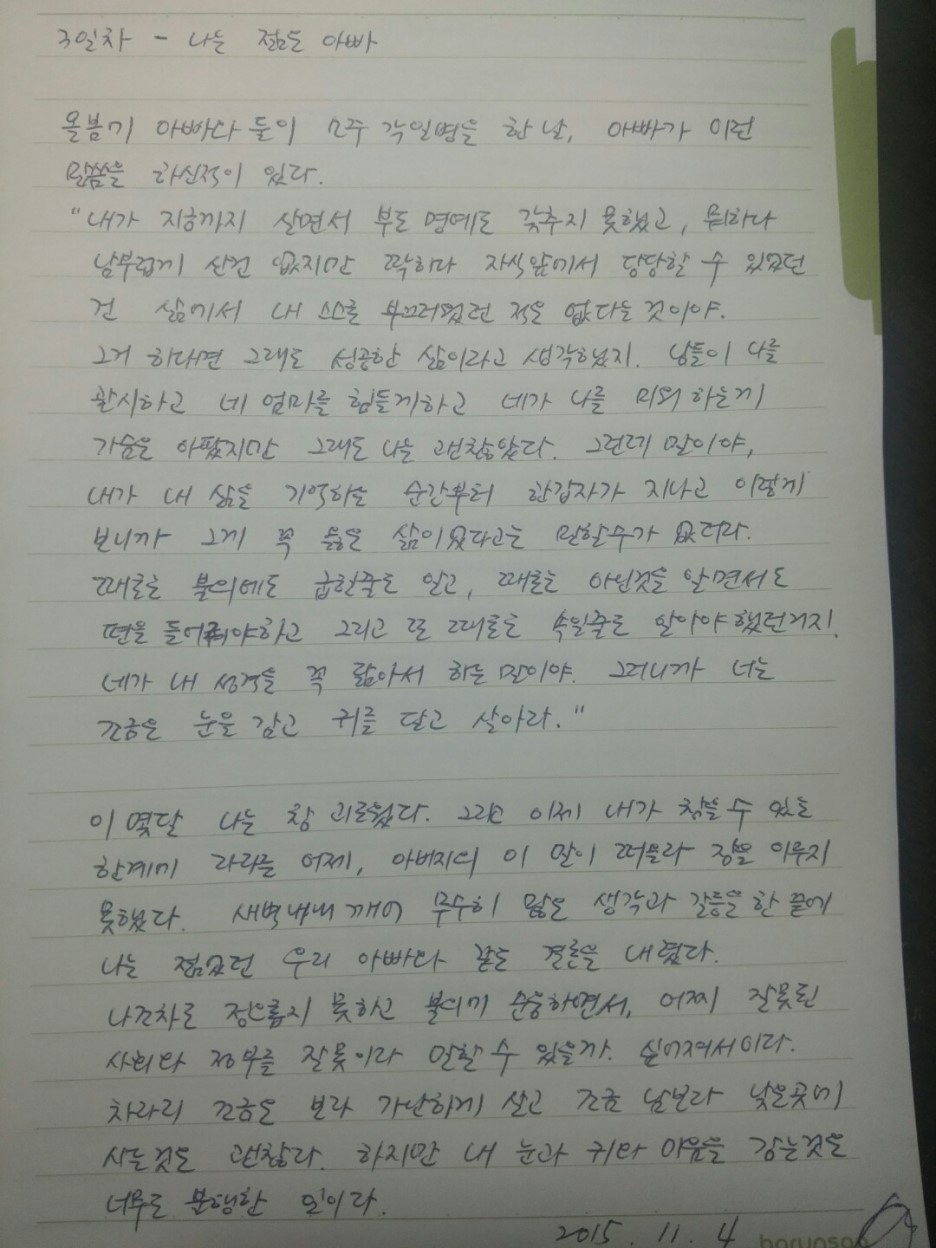 3일차 - 나는 젊은 아빠
올봄기 아빠와 둘이 소주 각일병을 한 날, 아빠가 이런
말씀을 하신적이 있다.
"내가 지금까지 살면서 부도 명예도 갖추지 못했고, 뭐하나
남부럽게 산건 없지만 딱하나 자식앞에서 당당할 수 있었던
건 삶에서 내 스스로 부끄러웠런 적은 없다는 것이야.
그거 하다면 그래도 성공한 삶이라고 생각했지. 남들이 나를
무시하고 네 엄마를 힘들게하고 네가 나를 미워 하는게
가슴은 아팠지만 그래도 나는 괜찮았다. 그런데 말이야,
내가 내 삶을 기억하는 순간부터 한갑자가 지나고 이렇게
보니까 그게 꼭 옳은 삶이었다고는 말할수가 없더라.
때로는 불의에도 굽힐줄도 알고, 때로는 아닌것을 알면서도
편을 들어줘야하고 그리고 또 때로는 속일줄도 알아야 했던거지.
네가 내 성격을 꼭 닮아서 하는 말이야. 그러니까 너는
조금은 눈을 감고 귀를 닫고 살아라."
이 몇달 나는 참 괴로웠다. 그리고 이제 내가 참을 수 있는
한계에 다다른 어제, 아버지의 이 말이 떠올라 잠을 이루지
못했다. 새벽내내 깨어 무수히 많은 생각과 갈등을 한 끝에
나는 젊었던 우리 아빠와 같은 결론을 내렸다.
나조차도 정의롭지 못하고 불의에 순응하면서, 어찌 잘못된
사회와 정부를 잘못이라 말할 수 있을까. 싶어져서이다.
차라리 조금은 보다 가난하게 살고 조금 남보다 낮은곳에
사는것은 괜찮다. 하지만 내 눈과 귀와 마음을 감는것은
너무도 불행한 일이다.
2015. 11. 4
barunson